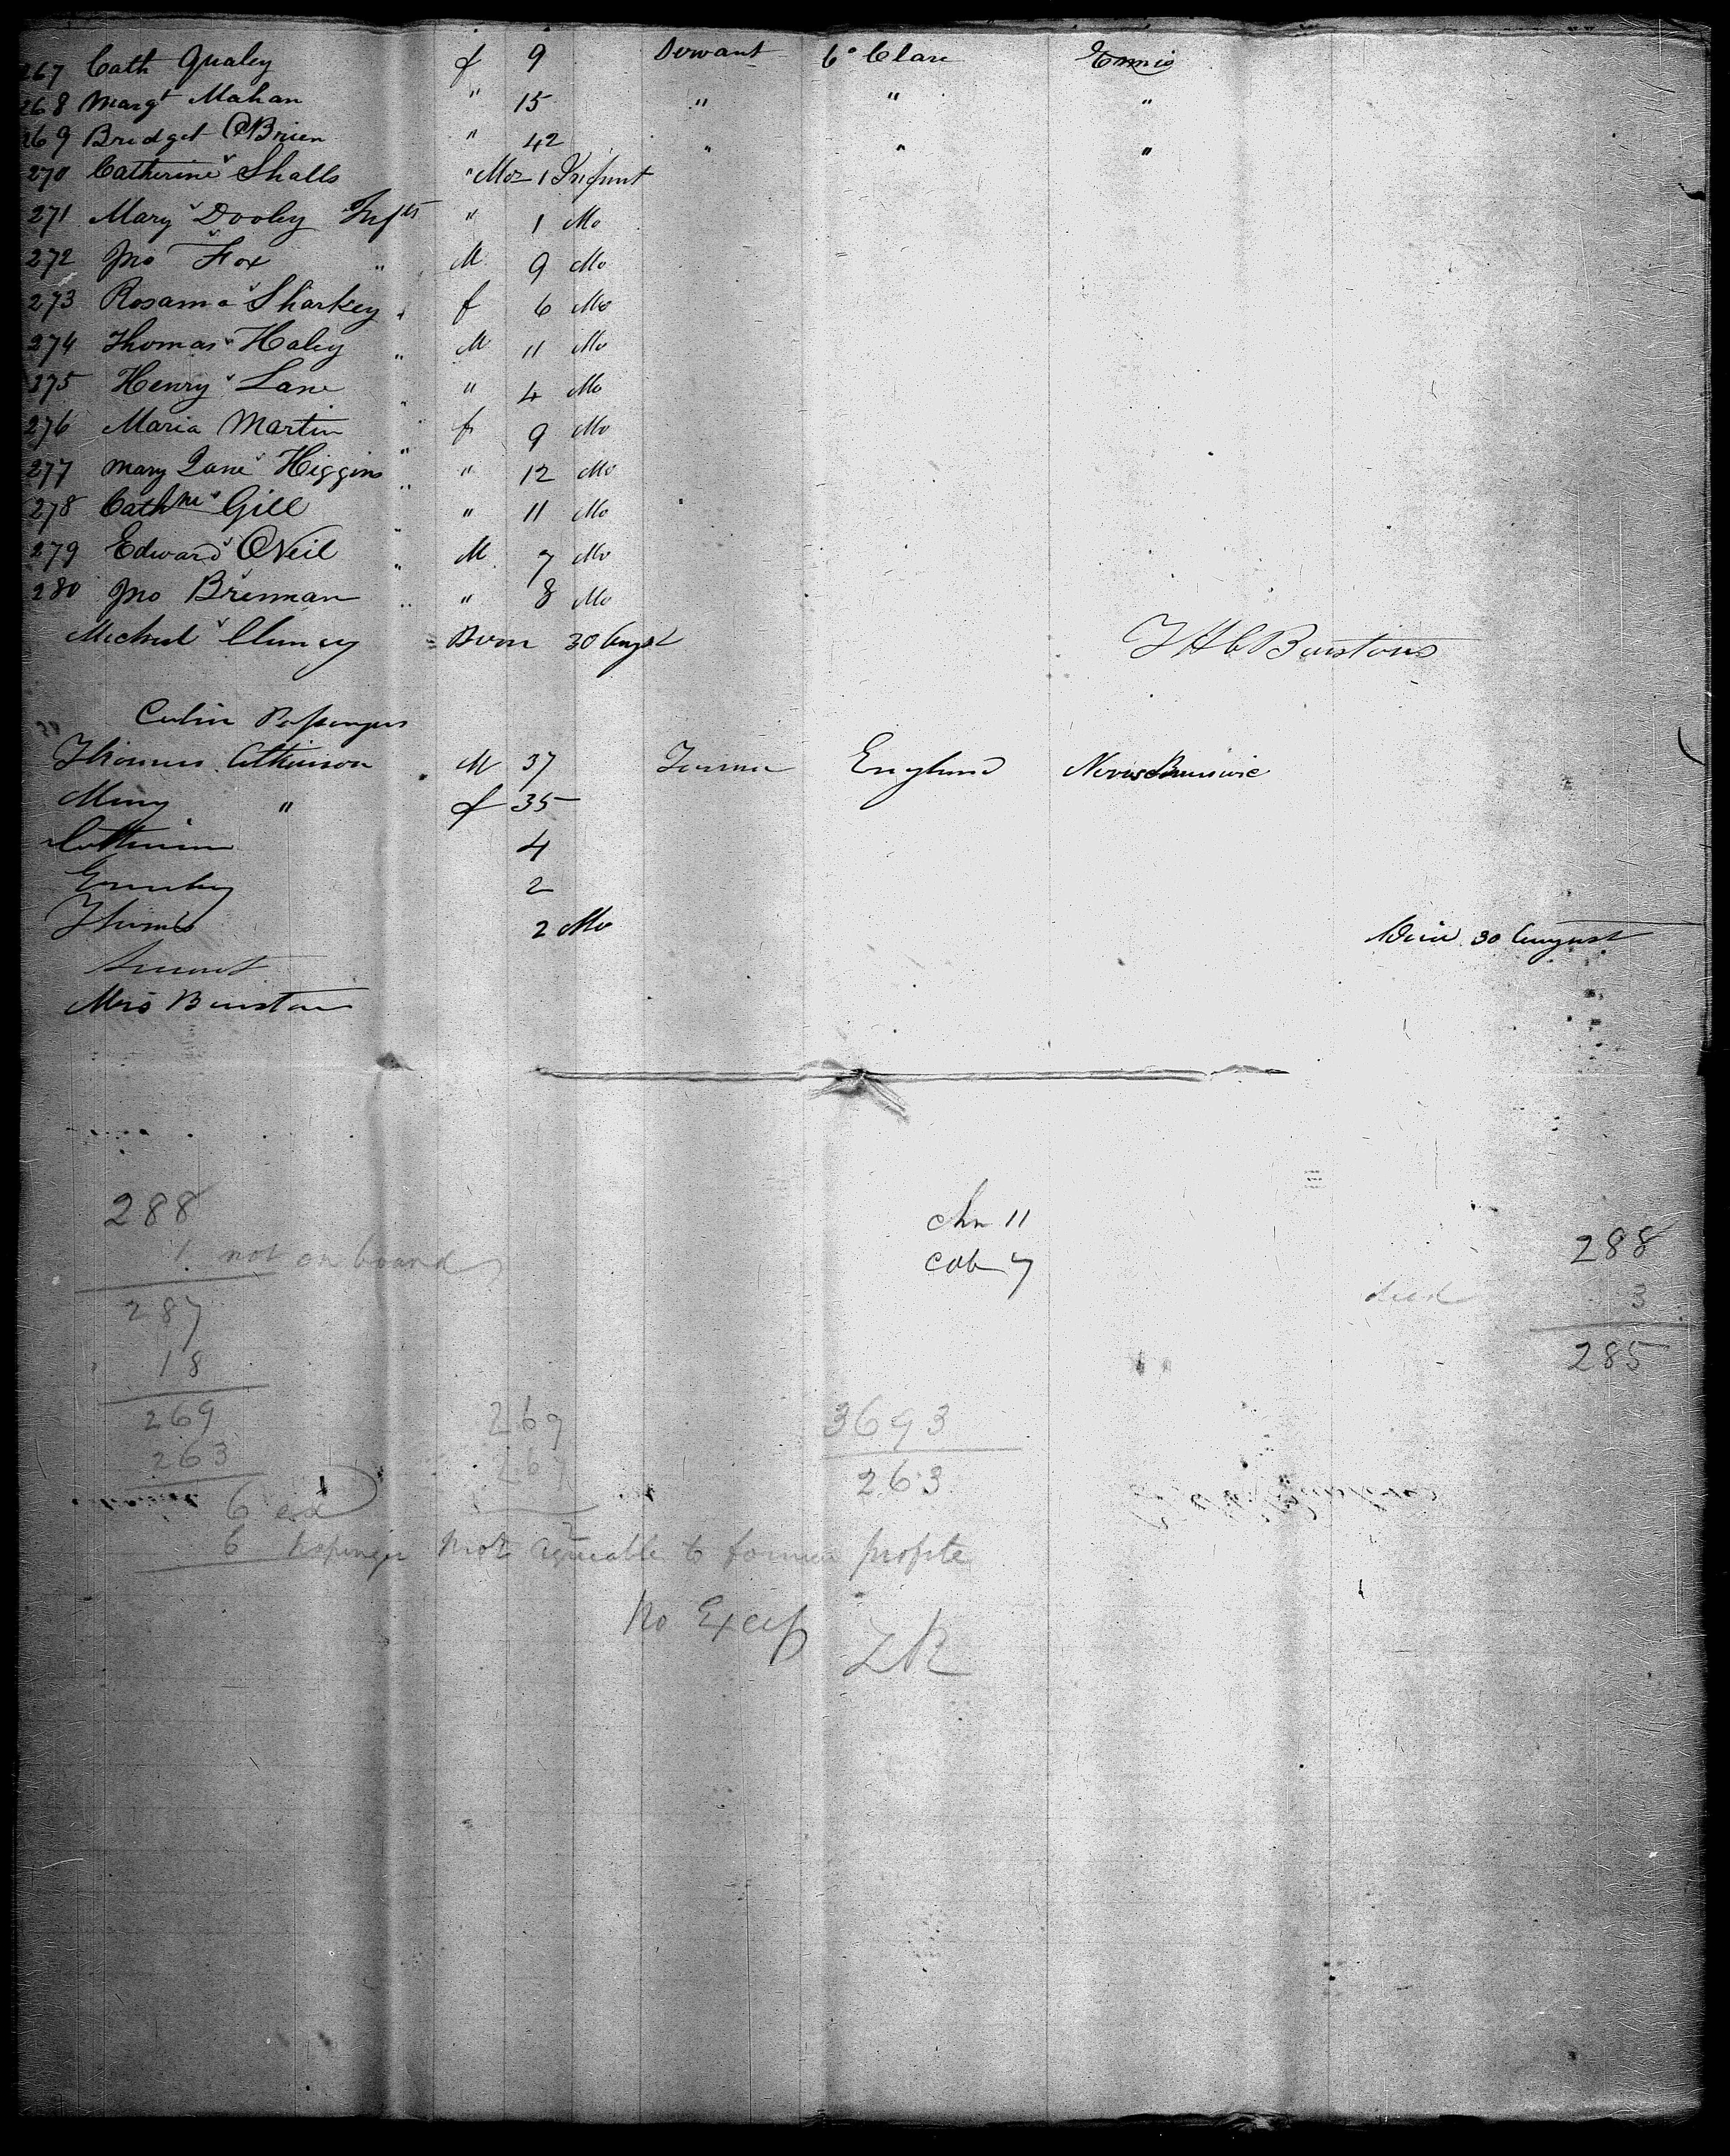 267 Cath Qualey f 9 Servant Co Clare Ennis
268 Margt Mahan " 15 " " "
269 Bridget O'Brien " 42 " " "
270 Catherine Shalls " Mo 1 Infant
271 Mary Dooley Infts " 1 Mo
272 Jno Fox " M 9 Mo
273 Rosanna Sharkey " f 6 Mo
274 Thomas Haley " M 11 Mo
275 Henry Lane " " 4 Mo
276 Maria Martin " f 9 Mo
277 Mary Jane Higgins " " 12 Mo
278 Cathne Gill " " 11 Mo
279 Edward ONeil " M 7 Mo
280 Jno Brennan " " 8 Mo
Michael Clancy Born 30 Augst
Cabin Passengers
Thomas Atkinson M 37 Farmer England New Brunswic
Mary " f 35
Catherine 4
Emily 2
Thomas 2 Mo Died 30 August
Servant
Mrs
288
1 not on board
287
18
269
263
6
Chn 11
Cab 7
288
died 3
285
269
3693
263
6 passenger not agreeable to former
No Excep